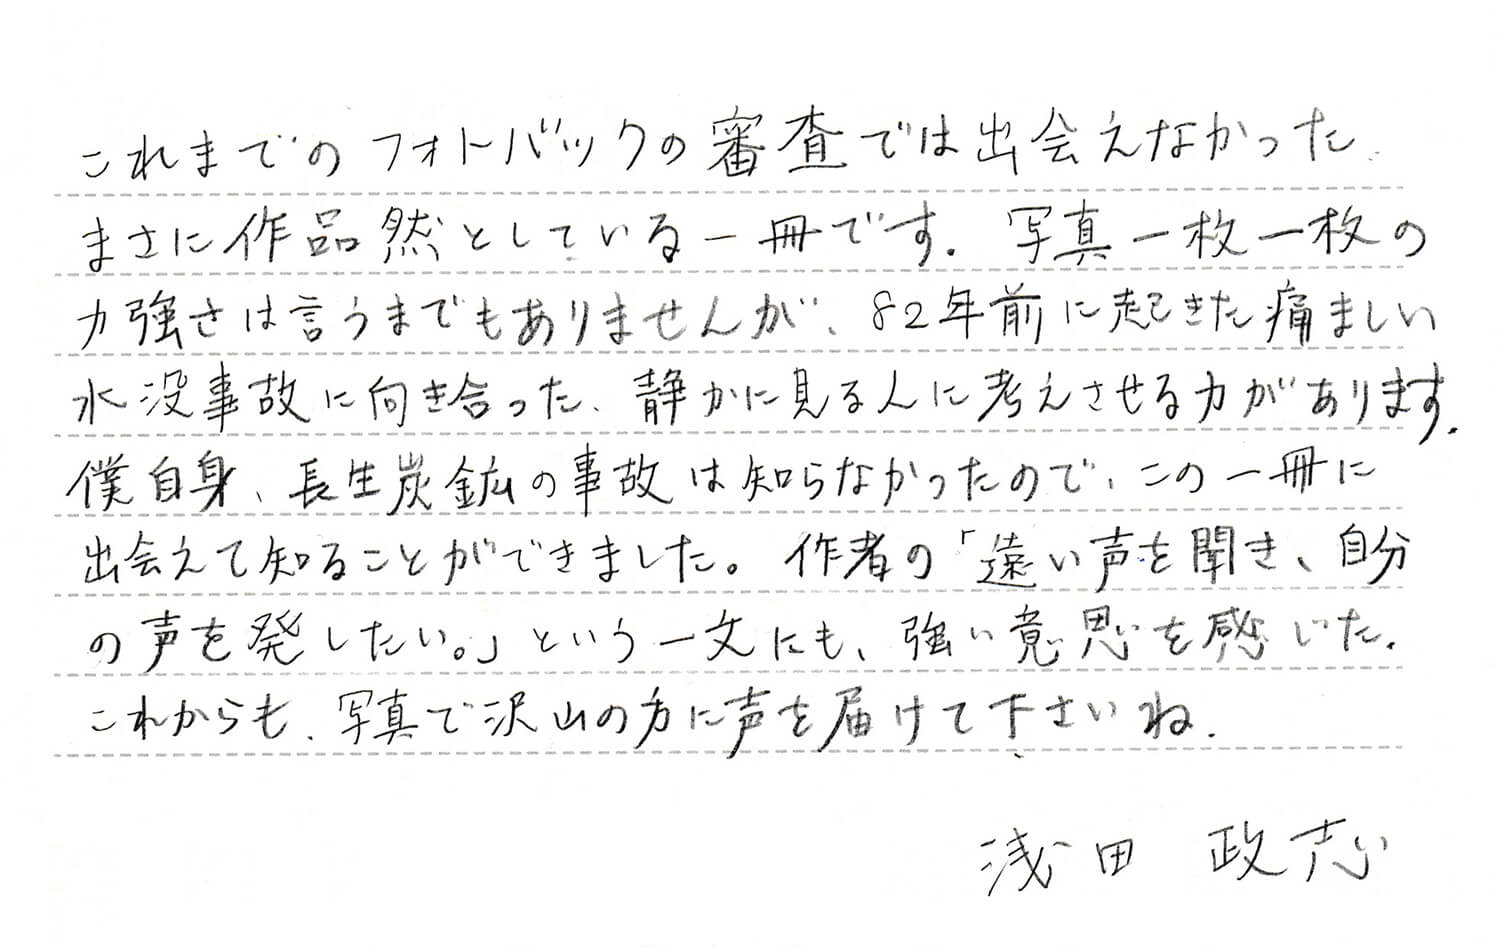 これまでのフォトバックの審査では出会えなかった、
まさに作品然としている一冊です。写真一枚一枚の
力強さは言うまでもありませんが、82年前に起きた痛ましい
水没事故に向き合った、静かに見る人に考えさせる力があります。
僕自身、長生炭鉱の事故は知らなかったので、この一冊に
出会えて知ることができました。作者の「遠い声を聞き、自分
の声を発したい。」という一文にも、強い意思を感じた。
これからも、写真で沢山の方に声を届けて下さいね。
浅田 政志